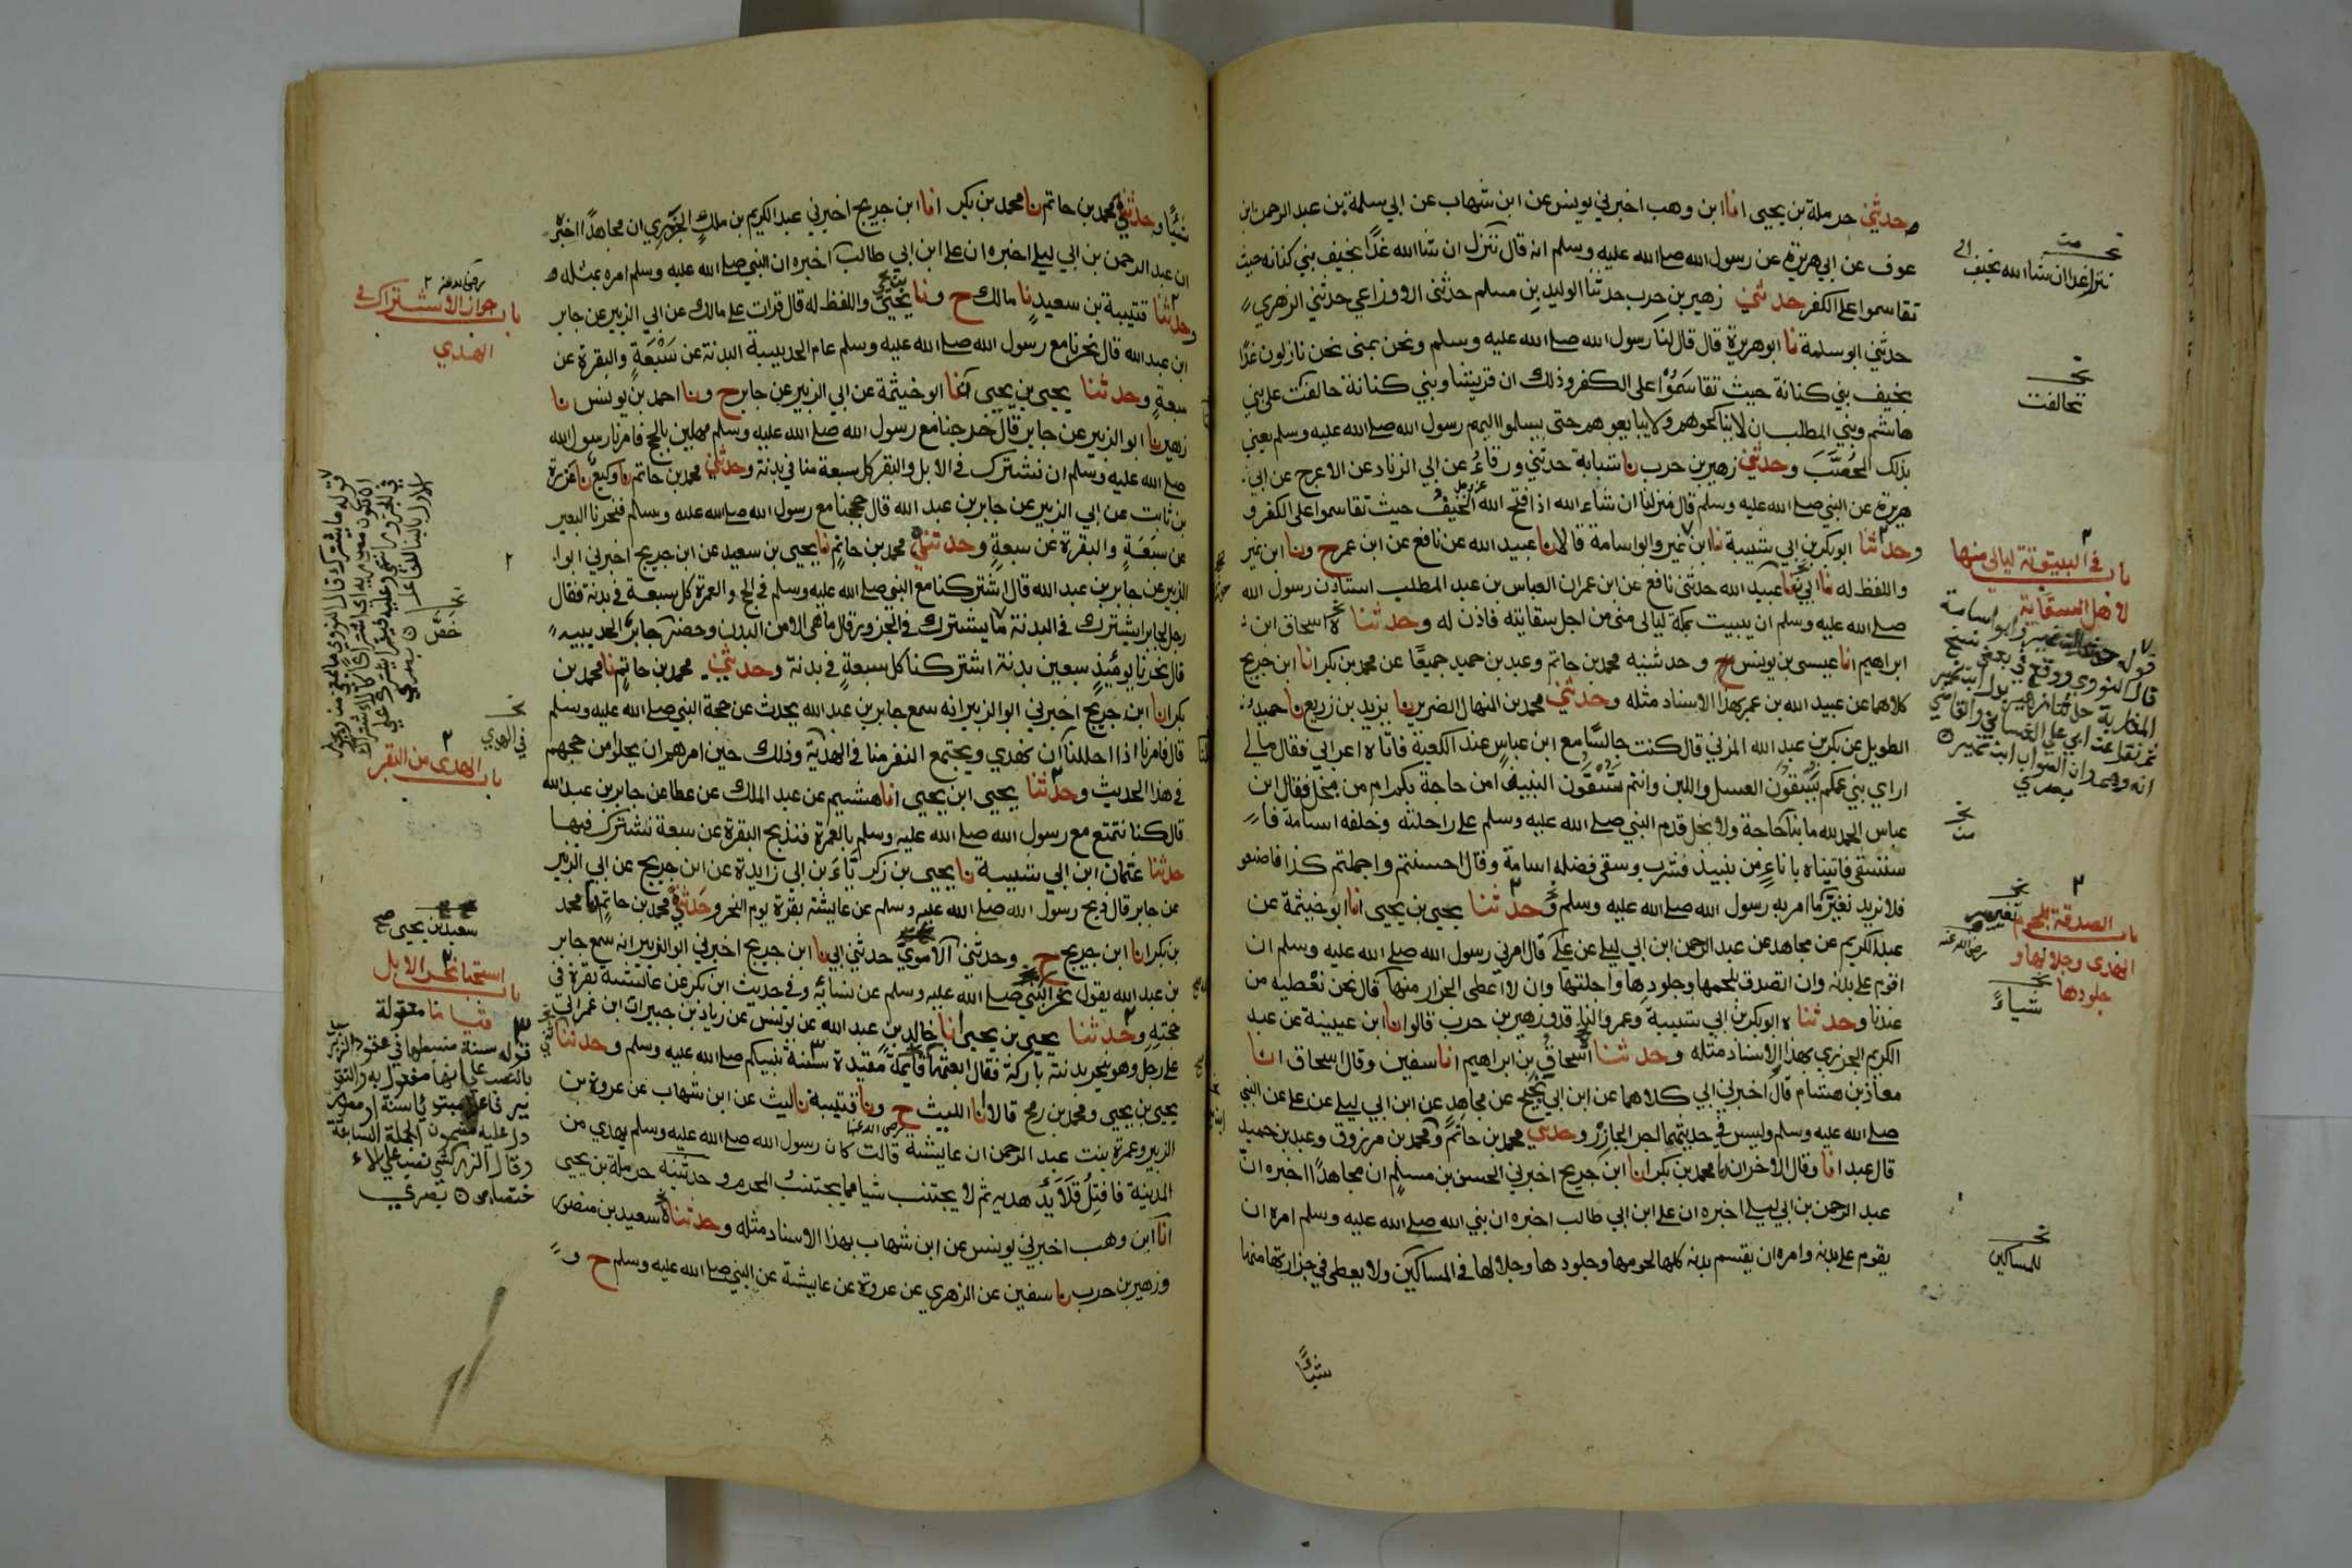 وحدثني حرملة بن يحيى انا ابن وهب اخبرني يونس عن ابن شهاب عن ابي سلمة بن عبد الرحمن بن
عوف عن ابي هريرة عن رسول الله صلى الله عليه وسلم انه قال ننزل ان شا الله غدًا بخيف بني كنانه حيث
تقاسموا على الكفر حدثني زهير بن حرب حدثنا الوليد بن مسلم حدثني الاوزاعي حدثني الزهري
حدثني ابو سلمة نا ابو هريرة قال قال لنا رسول الله صلى الله عليه وسلم ونحن بمنى نحن نازلون غدًا
بخيف بني كنانة حيث تقاسَمُوْا على الكفر وذلك ان قريشا وبني كنانة حالفت على بني
هاشم وبني المطلب ان لا يناكحوهم ولا يبايعوهم حتى يسلموا اليهم رسول الله صلى الله عليه وسلم يعني
بذلك المُحَصَّبَ وحدثني زهير بن حرب نا شبابة حدثني ورقاءُ عن ابي الزناد عن الاعرج عن ابي
هريرة عن النبي صلى الله عليه وسلم قال منزلنا ان شاء الله اذا فتح الله الخيفُ حيث تقاسموا على الكفر و
وحدثنا ابو بكر بن ابي شيبة نا ابن نمير وابو اسامة قالا نا عبيد الله عن نافع عن ابن عمر ح ونا ابن نمير
واللفظ له نا ابي نا عبيد الله حدثني نافع عن ابن عمر ان العباس بن عبد المطلب استاذن رسول الله
صلى الله عليه وسلم ان يبيت بمكة ليالى منى من اجل سقايته فاذن له وحدثناه اسحاق ابن
ابراهيم انا عيسى بن يونس ح وحدثنيه محمد بن حاتم وعبد بن حميد جميعًا عن محمد بن بكر انا ابن جريج
كلاهما عن عبيد الله بن عمر بهذا الاسناد مثله وحدثني محمد بن المنهال الضرير نا يزيد بن زريع نا حميد
الطويل عن بكر بن عبد الله المزني قال كنت جالسًا مع ابن عباسٍ عند الكعبة فاتاه اعرابي فقال ما لي
ارى بني عمكم يسقون العسل واللبن وانتم تسقون النبيذ امن حاجة بكم ام من بخل فقال ابن
عباس الحمد لله ما بنا حاجة ولا بخل قدم النبي صلى الله عليه وسلم على راحلته وخلفه اسامة فا
ستسقى فاتيناه باناءٍ من نبيذ فشرب وسقى فضله اسامة وقال احسنتم واجملتم كذا فاصنعو
فلا نريد نغير ما امر به رسول الله صلى الله عليه وسلم وحدثنا يحيى بن يحيى انا ابو خيثمة عن
عبد الكريم عن مجاهد عن عبد الرحمن ابن ابي ليلى عن علي قال امرني رسول الله صلى الله عليه وسلم ان
اقوم على بدنه وان اتصدق بلحمها وجلودها واجلتها وان لا اعطى الجزار منها قال نحن نعطيه من
عندنا وحدثناه ابو بكر بن ابي شيبة وعمرو الناقد وزهير بن حرب قالوا نا ابن عيينة عن عبد
الكريم الجزري بهذا الاسناد مثله وحدثنا اسحاق بن ابراهيم انا سفين وقال اسحاق انا
معاذ بن هشام قال اخبرني ابي كلاهما عن ابن ابي نجيح عن مجاهد عن ابن ابي ليلى عن علي عن النبي
صلى الله عليه وسلم وليس في حديثهما اجر الجازر وحدثني محمد بن حاتم ومحمد بن مرزوق وعبد بن حميد
قال عبد انا وقال الاخران نا محمد بن بكر انا ابن جريج اخبرني الحسن بن مسلم ان مجاهدًا اخبره انّ
عبد الرحمن بن ابي ليلى اخبره ان علي ابن ابي طالب اخبره ان نبي الله صلى الله عليه وسلم امره ان
يقوم على بدنه وامره ان يقسم بدنه كلها لحومها وجلودها وجلالها في المساكين ولا يعطى في جزارتها منها
شيئًا
ننزل غدا ان شا الله بخيف
تحالفت
باب في البيتوتة ليالى منها
لاهل السقاية
باب الصدقة بلحوم
الهدى وجلالها و
جلودها
شياءً
للمساكين
شيئًا وحدثني محمد بن حاتم نا محمد بن بكر انا ابن جريج اخبرني عبد الكريم بن ملكٍ الجزري ان مجاهدًا اخبره
ان عبد الرحمن بن ابي ليلى اخبره ان علي ابن ابي طالب اخبره ان النبي صلى الله عليه وسلم امره بمثله
وحدثنا قتيبة بن سعيدٍ نا مالك ح ونا يحيى واللفظ له قال قرات على مالك عن ابي الزبير عن جابر
ابن عبد الله قال نحرنا مع رسول الله صلى الله عليه وسلم عام الحديبية البدنة عن سَبْعَةٍ والبقرة عن
سبعةٍ وحدثنا يحيى بن يحيى انا ابو خيثمة عن ابي الزبير عن جابر ح ونا احمد بن يونس نا
زهير نا ابو الزبير عن جابر قال خرجنا مع رسول الله صلى الله عليه وسلم مهلين بالحج فامرنا رسول الله
صلى الله عليه وسلم ان نشترك في الابل والبقر كل سبعة منا في بدنة وحدثني محمد بن حاتم نا وكيع نا عزرة
بن ثابت عن ابي الزبير عن جابر بن عبد الله قال حججنا مع رسول الله صلى الله عليه وسلم فنحرنا البعير
عن سَبَعَةٍ والبقرة عن سبعةٍ وحدثني محمد بن حاتم نا يحيى بن سعيد عن ابن جريج اخبرني ابوا
الزبير عن جابر بن عبد الله قال اشتركنا مع النبي صلى الله عليه وسلم في الحج والعمرة كل سبعة في بدنة فقال
رجل لجابر ايشترك في البدنة ما يشترك في الجزور قال ما هي الا من البدن وحضر جابرٌ الحديبيه
قال نحرنا يومئذٍ سبعين بدنة اشتركنا كل سبعةٍ في بدنة وحدثني محمد بن حاتمٍ نا محمد بن
بكر انا ابن جريج اخبرني ابو الزبير انه سمع جابر بن عبد الله يحدث عن حجة النبي صلى الله عليه وسلم
قال فامرنا اذا احللنا ان نهدي ويجتمع النفر منا في الهديّة وذلك حين امرهم ان يحلوا من حجهم
في هذا الحديث وحدثنا يحيى ابن يحيى انا هشيم عن عبد الملك عن عطا عن جابر بن عبد الله
قال كنا نتمتع مع رسول الله صلى الله عليه وسلم بالعمرة فنذبح البقرة عن سبعة نشترك فيها
حدثنا عثمان ابن ابي شيبة نا يحيى بن زكرياءَ بن ابي زايدة عن ابن جريج عن ابي الزبير
عن جابر قال ذبح رسول الله صلى الله عليه وسلم عن عايشة بقرة يوم النحر وحدثني محمد بن حاتم نا محمد
بن بكر انا ابن جريج ح وحدثني الاموي حدثني ابي نا ابن جريج اخبرني ابو الزبير انه سمع جابر
بن عبد الله يقول نحر النبي صلى الله عليه وسلم عن نسائه وفي حديث ابن بكر عن عائشة بقرة في
حجته وحدثنا يحيى بن يحيى انا خالد بن عبد الله عن يونس عن زياد بن جبير ان ابن عمر اتى
على رجل وهو ينحر بدنته باركة فقال ابعثها قايمة مقيدة سنة نبيكم صلى الله عليه وسلم وحدثنا
يحيى بن يحيى ومحمد بن رمح قالا انا الليث ح ونا قتيبة نا ليث عن ابن شهاب عن عروة بن
الزبير وعمرة بنت عبد الرحمن ان عايشة قالت كان رسول الله صلى الله عليه وسلم يهدي من
المدينة فافتل قلايد هديه ثم لا يجتنب شيا مما يجتنب المحرم وحدثنيه حرملة بن يحيى
انا ابن وهب اخبرني يونس عن ابن شهاب بهذا الاسناد مثله وحدثناه سعيد بن منصور
وزهير بن حرب نا سفين عن الزهري عن عروة عن عايشة عن النبي صلى الله عليه وسلم ح و
باب جواز الاشتراك في
الهدي
في الهدي
باب الهدى من البقر
سعيد بن يحيى صح
باب استحباب نحر الابل
قياما معقولة